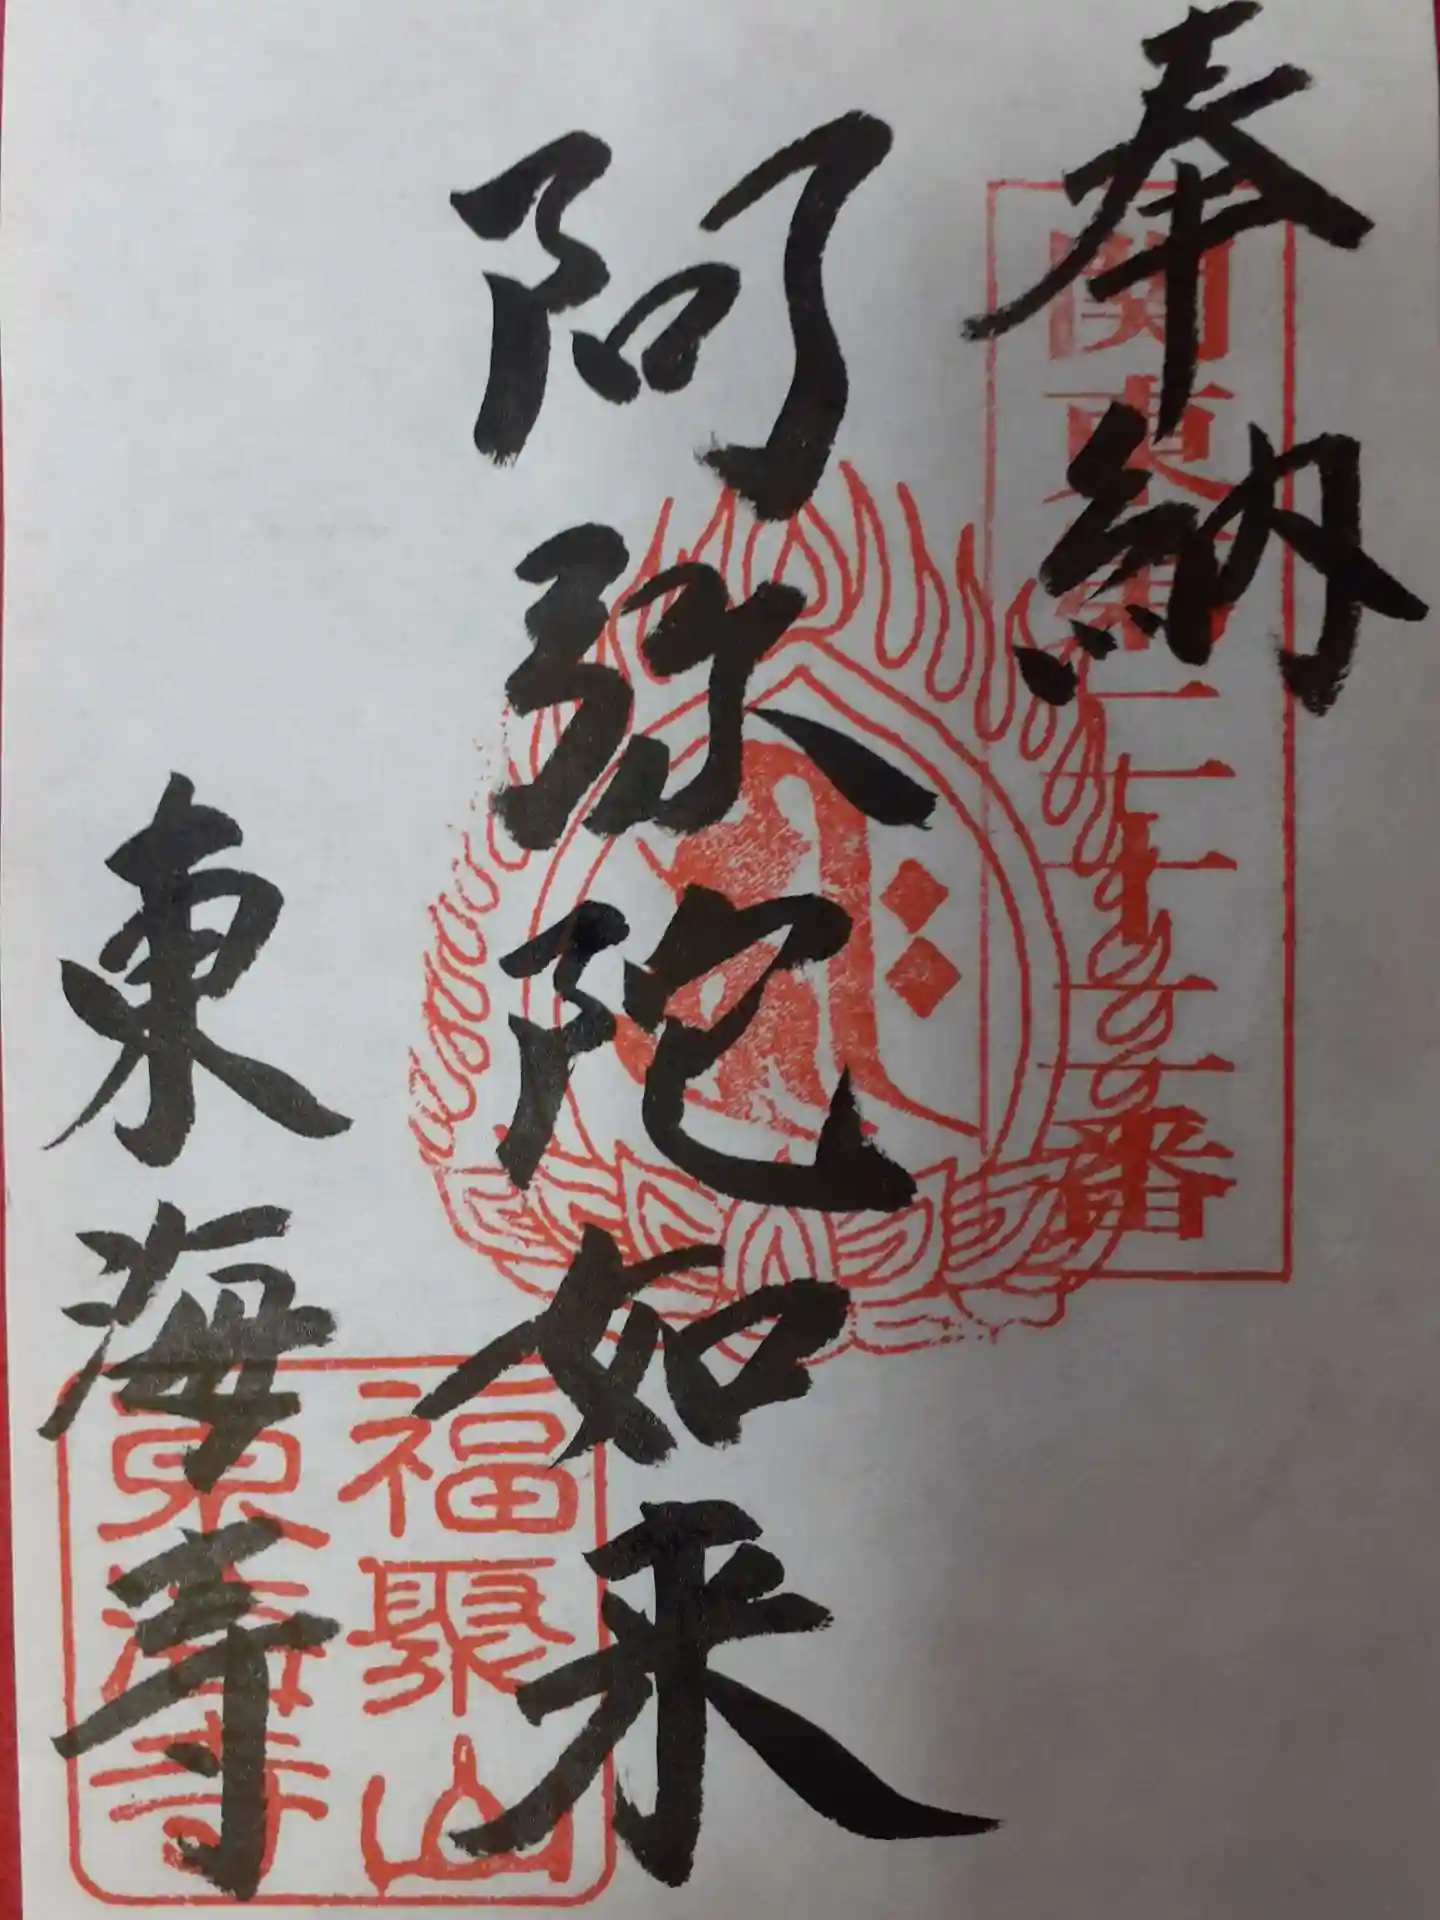 奉納
関東第二十二番
阿弥陀如来
東海寺
福聚山
東海寺